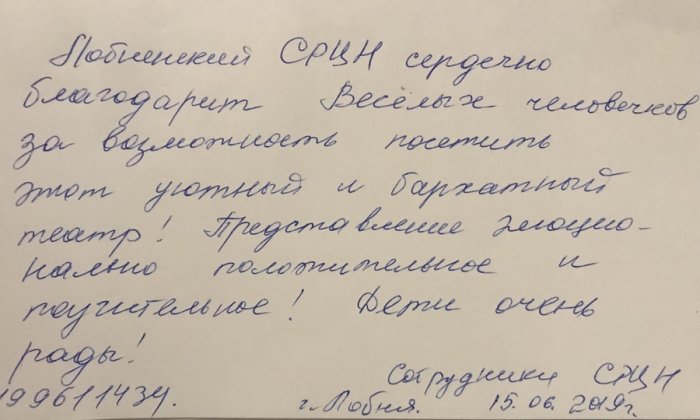 Лобненский СРЦН сердечно
благодарит Весёлых человечков
за возможность посетить
этот уютный и бархатный
театр! Представление эмоцио-
нально положительное и
поучительное! Дети очень
рады!
Сотрудники СРЦН
99611434. г. Лобня. 15.06.2019г.